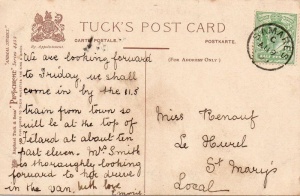 TUCK'S POST CARD
By Appointment.
CARTE POSTALE.
POSTKARTE.
(FOR ADDRESS ONLY.)
We are looking forward
to Friday, we shall
come in by the 11.5
train from town so
will be at the top of
Island at about ten
part eleven. Mr. Smith
is thoroughly looking
forward to her drive
in the van, with love
Miss Renouf
Le Hourel
St Mary's
Local